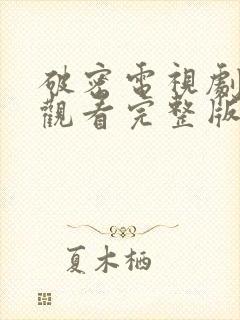 破密電視劇
觀看完整版
夏木栖